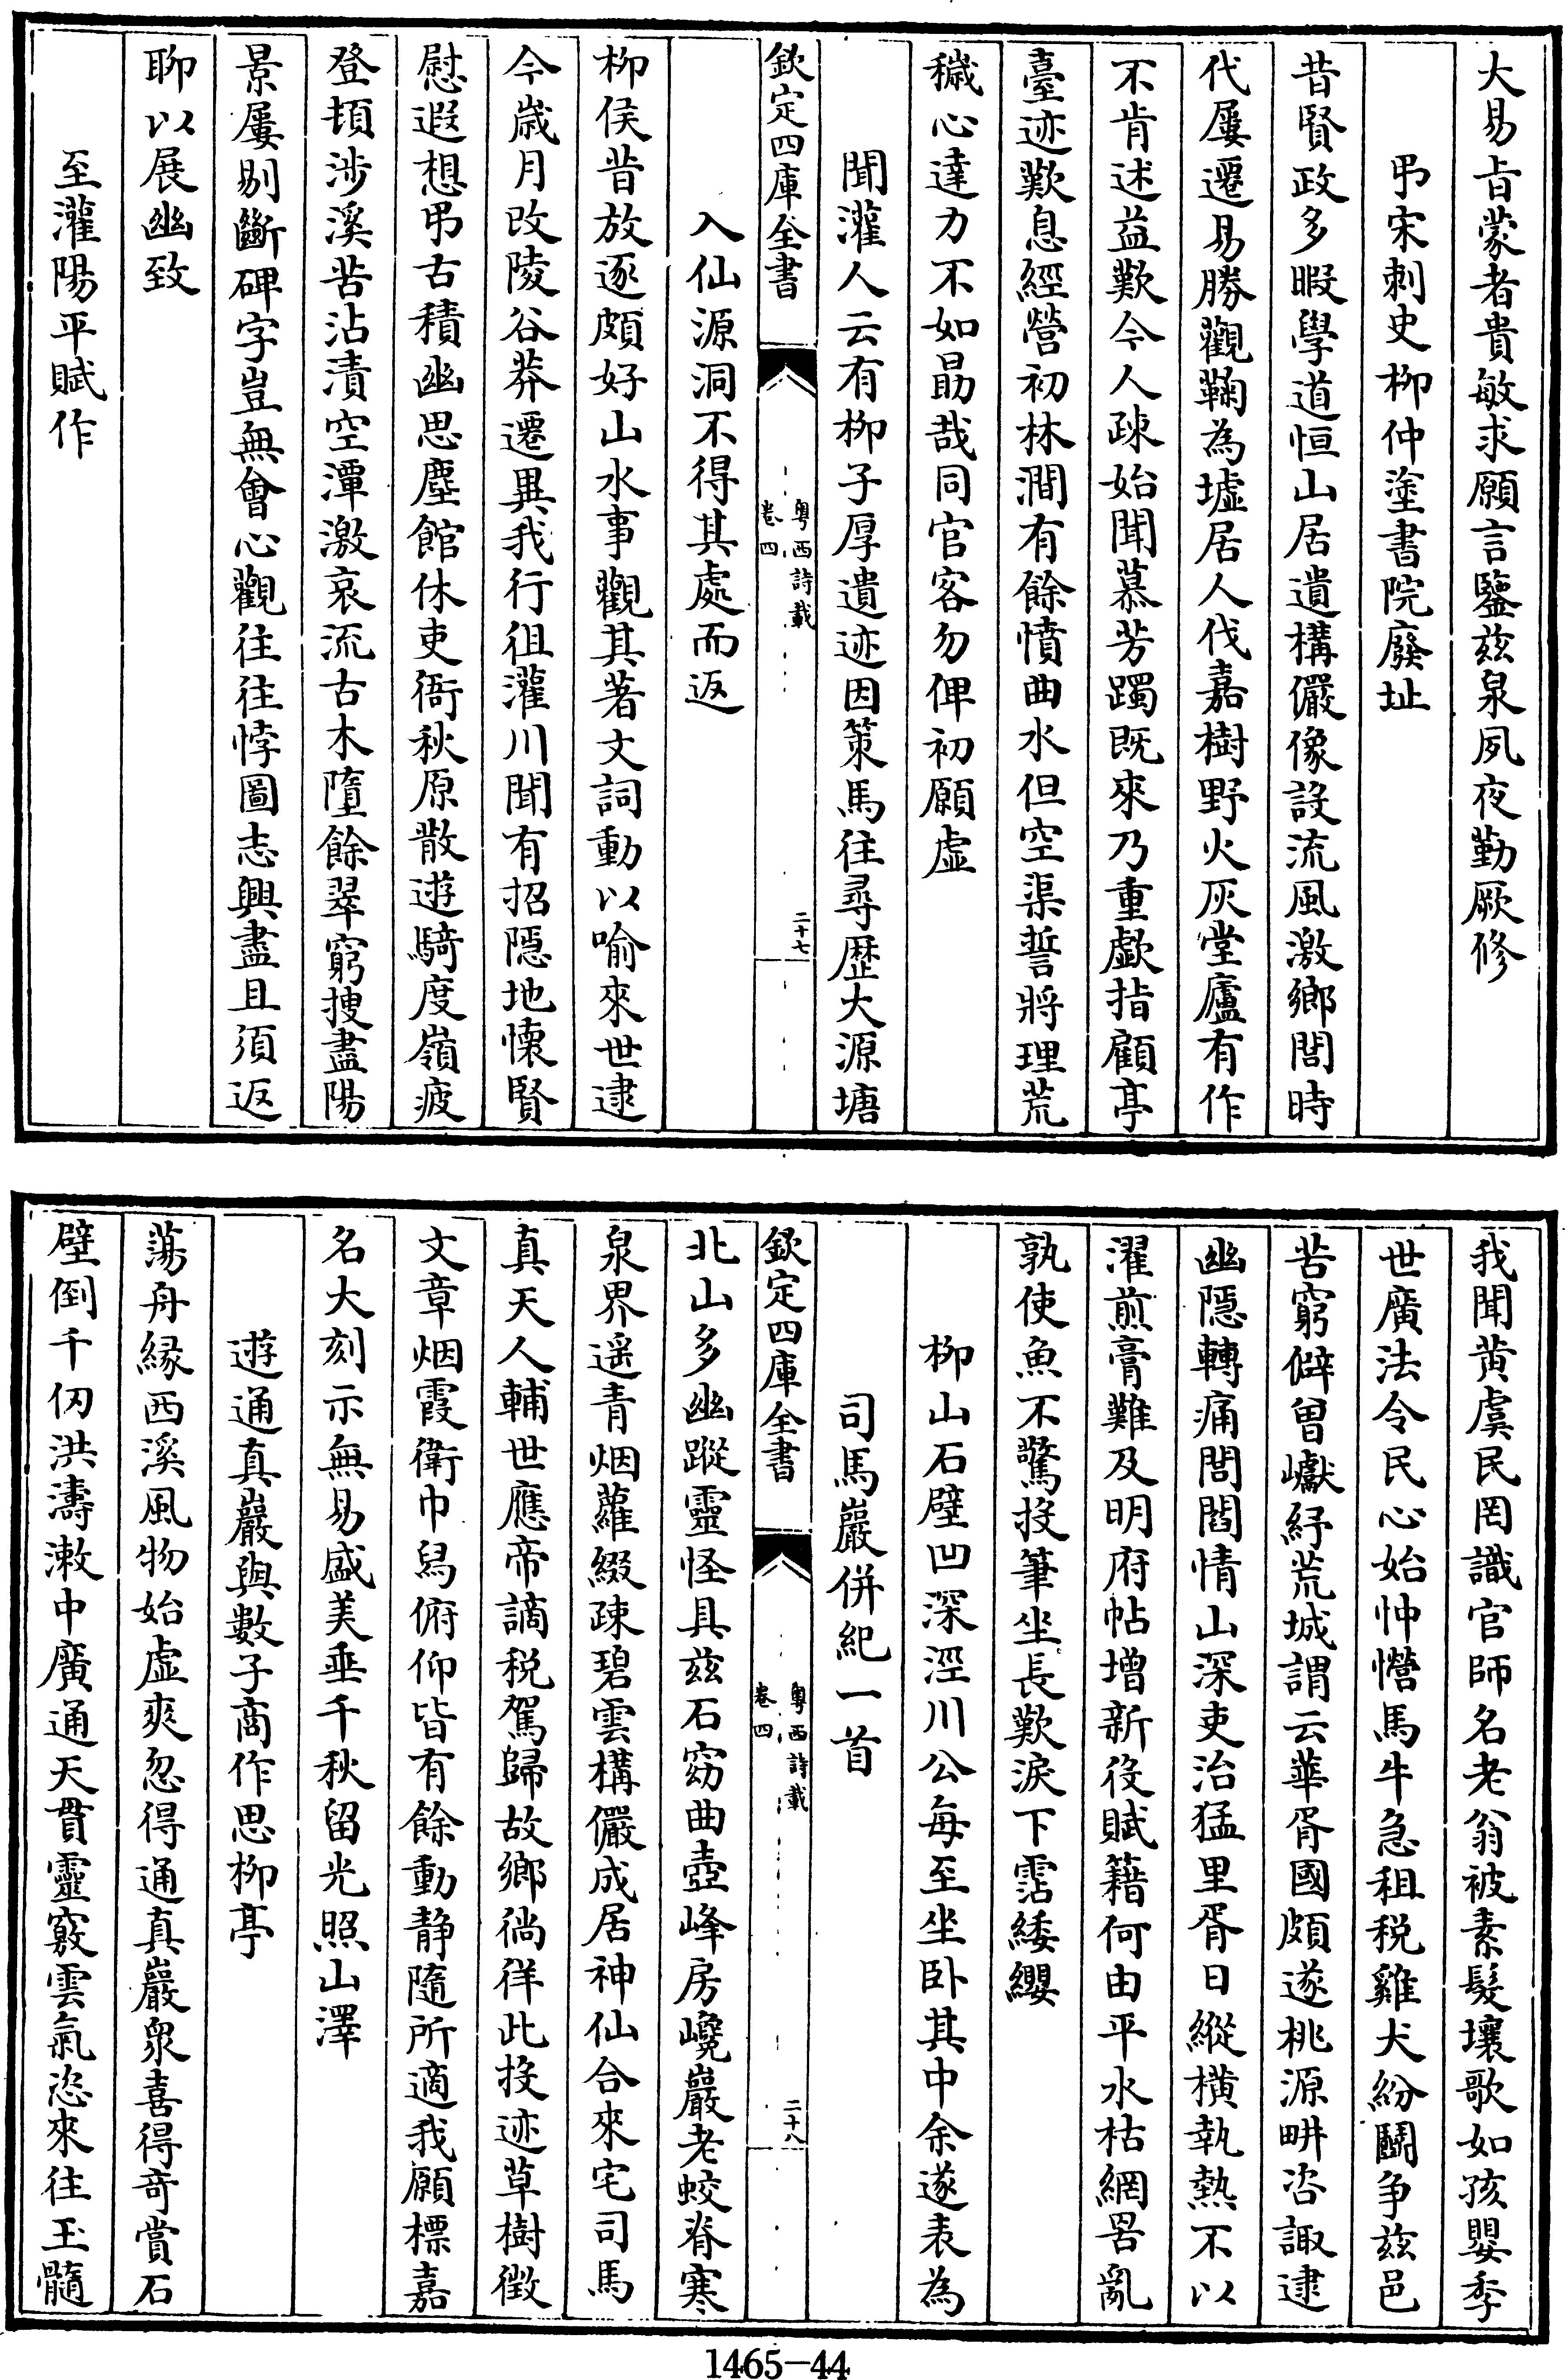 大易㫖蒙者貴敏求願言鑒兹泉夙夜勤厥修
弔宋刺史柳仲塗書院廢址
昔賢政多暇學道恒山居遺構儼像設流風激鄉閭時
代屢遷易勝觀鞠為墟居人伐嘉樹野火灰堂廬有作
不肯述益歎今人疎始聞慕芳躅既來乃重歔指顧亭
臺迹歎息經營初林澗有餘憤曲水但空渠誓將理荒
穢心達力不如勗哉同官客勿俾初願虚
聞灌人云有柳子厚遺迹因策馬往尋歴大源塘
欽定四庫全書
粤西詩載
卷四
二十七
入仙源洞不得其處而返
柳侯昔放逐頗好山水事觀其著文詞動以喻來世逮
今歳月改陵谷莽遷異我行徂灌川聞有招隠地懐賢
慰遐想弔古積幽思塵館休吏衙秋原散逰騎度嶺疲
登頓涉溪苦沾漬空潭激哀流古木墮餘翠窮搜盡陽
景屢剔斷碑字豈無會心觀往往悖圖志興盡且須返
聊以展幽致
至灌陽平賦作
我聞黄虞民罔識官師名老翁被素髮壤歌如孩嬰季
世廣法令民心始忡憯馬牛急租税雞犬紛鬭争兹邑
苦窮僻曽巘紆荒城謂云華胥國頗遂桃源畊咨諏逮
幽隠轉痛閭閻情山深吏治猛里胥日縱橫執熱不以
濯煎膏難及明府帖增新役賦籍何由平水枯網罟亂
孰使魚不驚投筆坐長歎淚下霑緌纓
柳山石壁凹深涇川公每至坐卧其中余遂表為
司馬巖併紀一首
欽定四庫全書
粤西詩載
卷四
二十八
北山多幽蹤靈怪具兹石窈曲壺峰房巉巖老蛟脊寒
泉界遥青烟蘿綴疎碧雲構儼成居神仙合來宅司馬
真天人輔世應帝謫税駕歸故鄉徜徉此投迹草樹徴
文章烟霞衛巾舄俯仰皆有餘動静隨所適我願標嘉
名大刻示無易盛美垂千秋留光照山澤
逰通真巖與數子商作思柳亭
蕩舟縁西溪風物始虚爽忽得通真巖衆喜得竒賞石
壁倒千仞洪濤潄中廣通天貫靈竅雲氣恣來往玉髓
1465-44